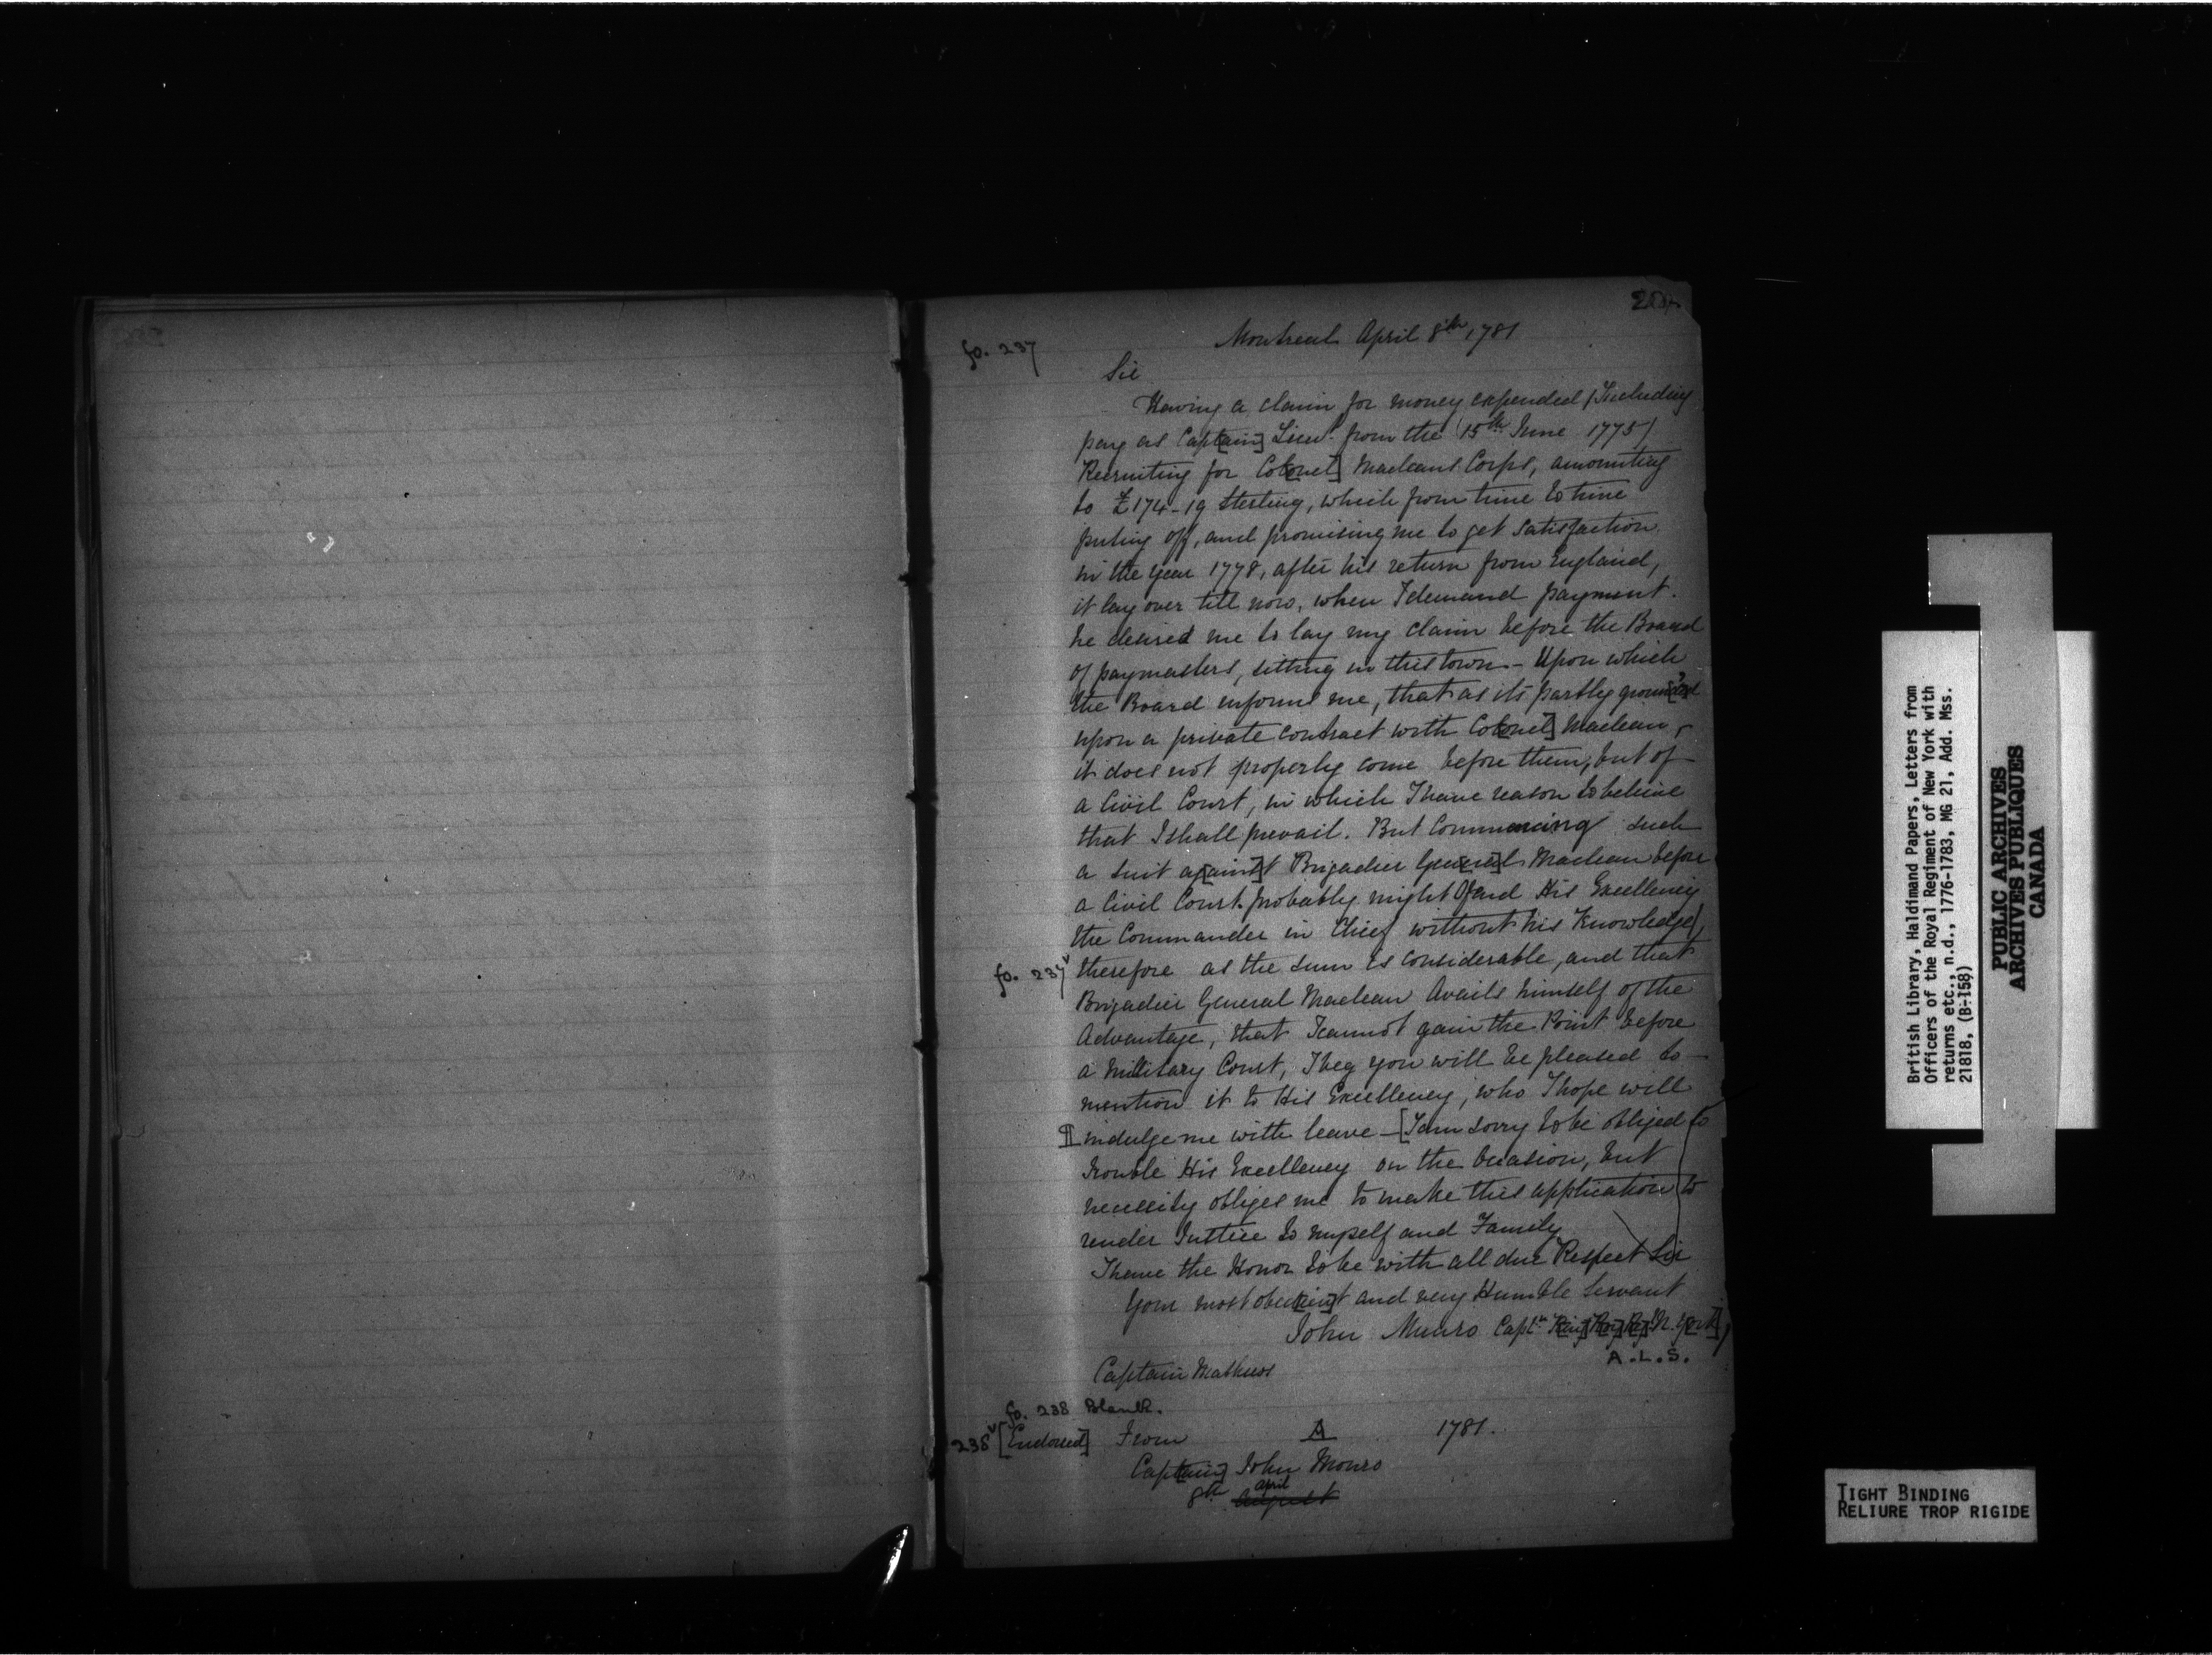 fo. 237
Montreal April 8th, 1781
Sir
Having a claim for money expended (Including
pay as Capt[ain] Lieut. from the 15th June 1775)
Recruiting for Co[lonel] Macleans Corps, amounting
to £174-19 Sterling, which from time to time
puting off, and promising me to get satisfaction
in the year 1778, after his return from England,
it lay over till now, when I demand payment.
he desired me to lay my claim before the Board
of paymasters, sitting in this town. - Upon which
the Board informd me, that as its partly ground[ed]
upon a private contract with Co[lonel] Maclean,
it does not properly come before them, but of
a Civil Court, in which I have reason to believe
that I shall prevail. But Commencing such
a suit ag[ains]t Brigadier Gen[era]l Maclean before
a Civil Court probably might Ofend His Excellency
the Commander in Chief without his Knowledge)
fo. 237v
therefore as the sum is considerable, and that
Brigadier General Maclean Avails himself of the
Advantage, that I cannot gain the Point before
a Military Court, I beg you will be pleased to -
mention it to His Excellency, who I hope will
indulge me with leave - [I am sorry to be obliged to
trouble His Excellency on the Occasion, but
necessity obliges me to make this application to
render Justice to myself and Family
I have the Honor to be with all due Respect Sir
Your most obed[ien]t and very Humble Servant
John Munro Captn K[ing's] R[oy]. R[eg]. N. Y[ork]
A.L.S.
Captain Mathews
fo. 238 Blank.
238v [Endorsed] From A 1781.
Capt[ain] John Monro
april
8th august
British Library, Haldimand Papers, Letters from
Officers of the Royal Regiment of New York with
returns etc., n.d., 1776-1783, MG 21, Add. Mss.
21818, (B-158)
PUBLIC ARCHIVES
ARCHIVES PUBLIQUES
CANADA
TIGHT BINDING
RELIURE TROP RIGIDE